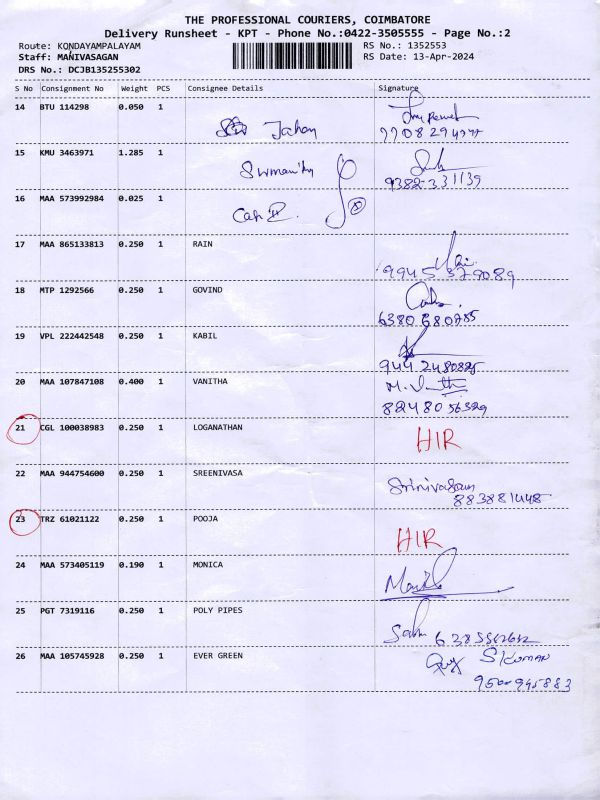 THE PROFESSIONAL COURIERS, COIMBATORE
Delivery Runsheet - KPT - Phone No.:0422-3505555 - Page No.:2
Route: KONDAYAMPALAYAM RS No.: 1352553
Staff: MANIVASAGAN RS Date: 13-Apr-2024
DRS No.: DCJB135255302
S No Consignment No Weight PCS Consignee Details Signature
14 BTU 114298 0.050 1
Jahan
15 KMU 3463971 1.285 1
9382-331139
16 MAA 573992984 0.025 1
17 MAA 865133813 0.250 1 RAIN
18 MTP 1292566 0.250 1 GOVIND
6380680785
19 VPL 222442548 0.250 1 KABIL
944 2480825
20 MAA 107847108 0.400 1 VANITHA
8248056329
21 CGL 100038983 0.250 1 LOGANATHAN
HIR
22 MAA 944754600 0.250 1 SREENIVASA
Srinivasan
23 TRZ 61021122 0.250 1 POOJA
HIR
24 MAA 573405119 0.190 1 MONICA
25 PGT 7319116 0.250 1 POLY PIPES
26 MAA 105745928 0.250 1 EVER GREEN